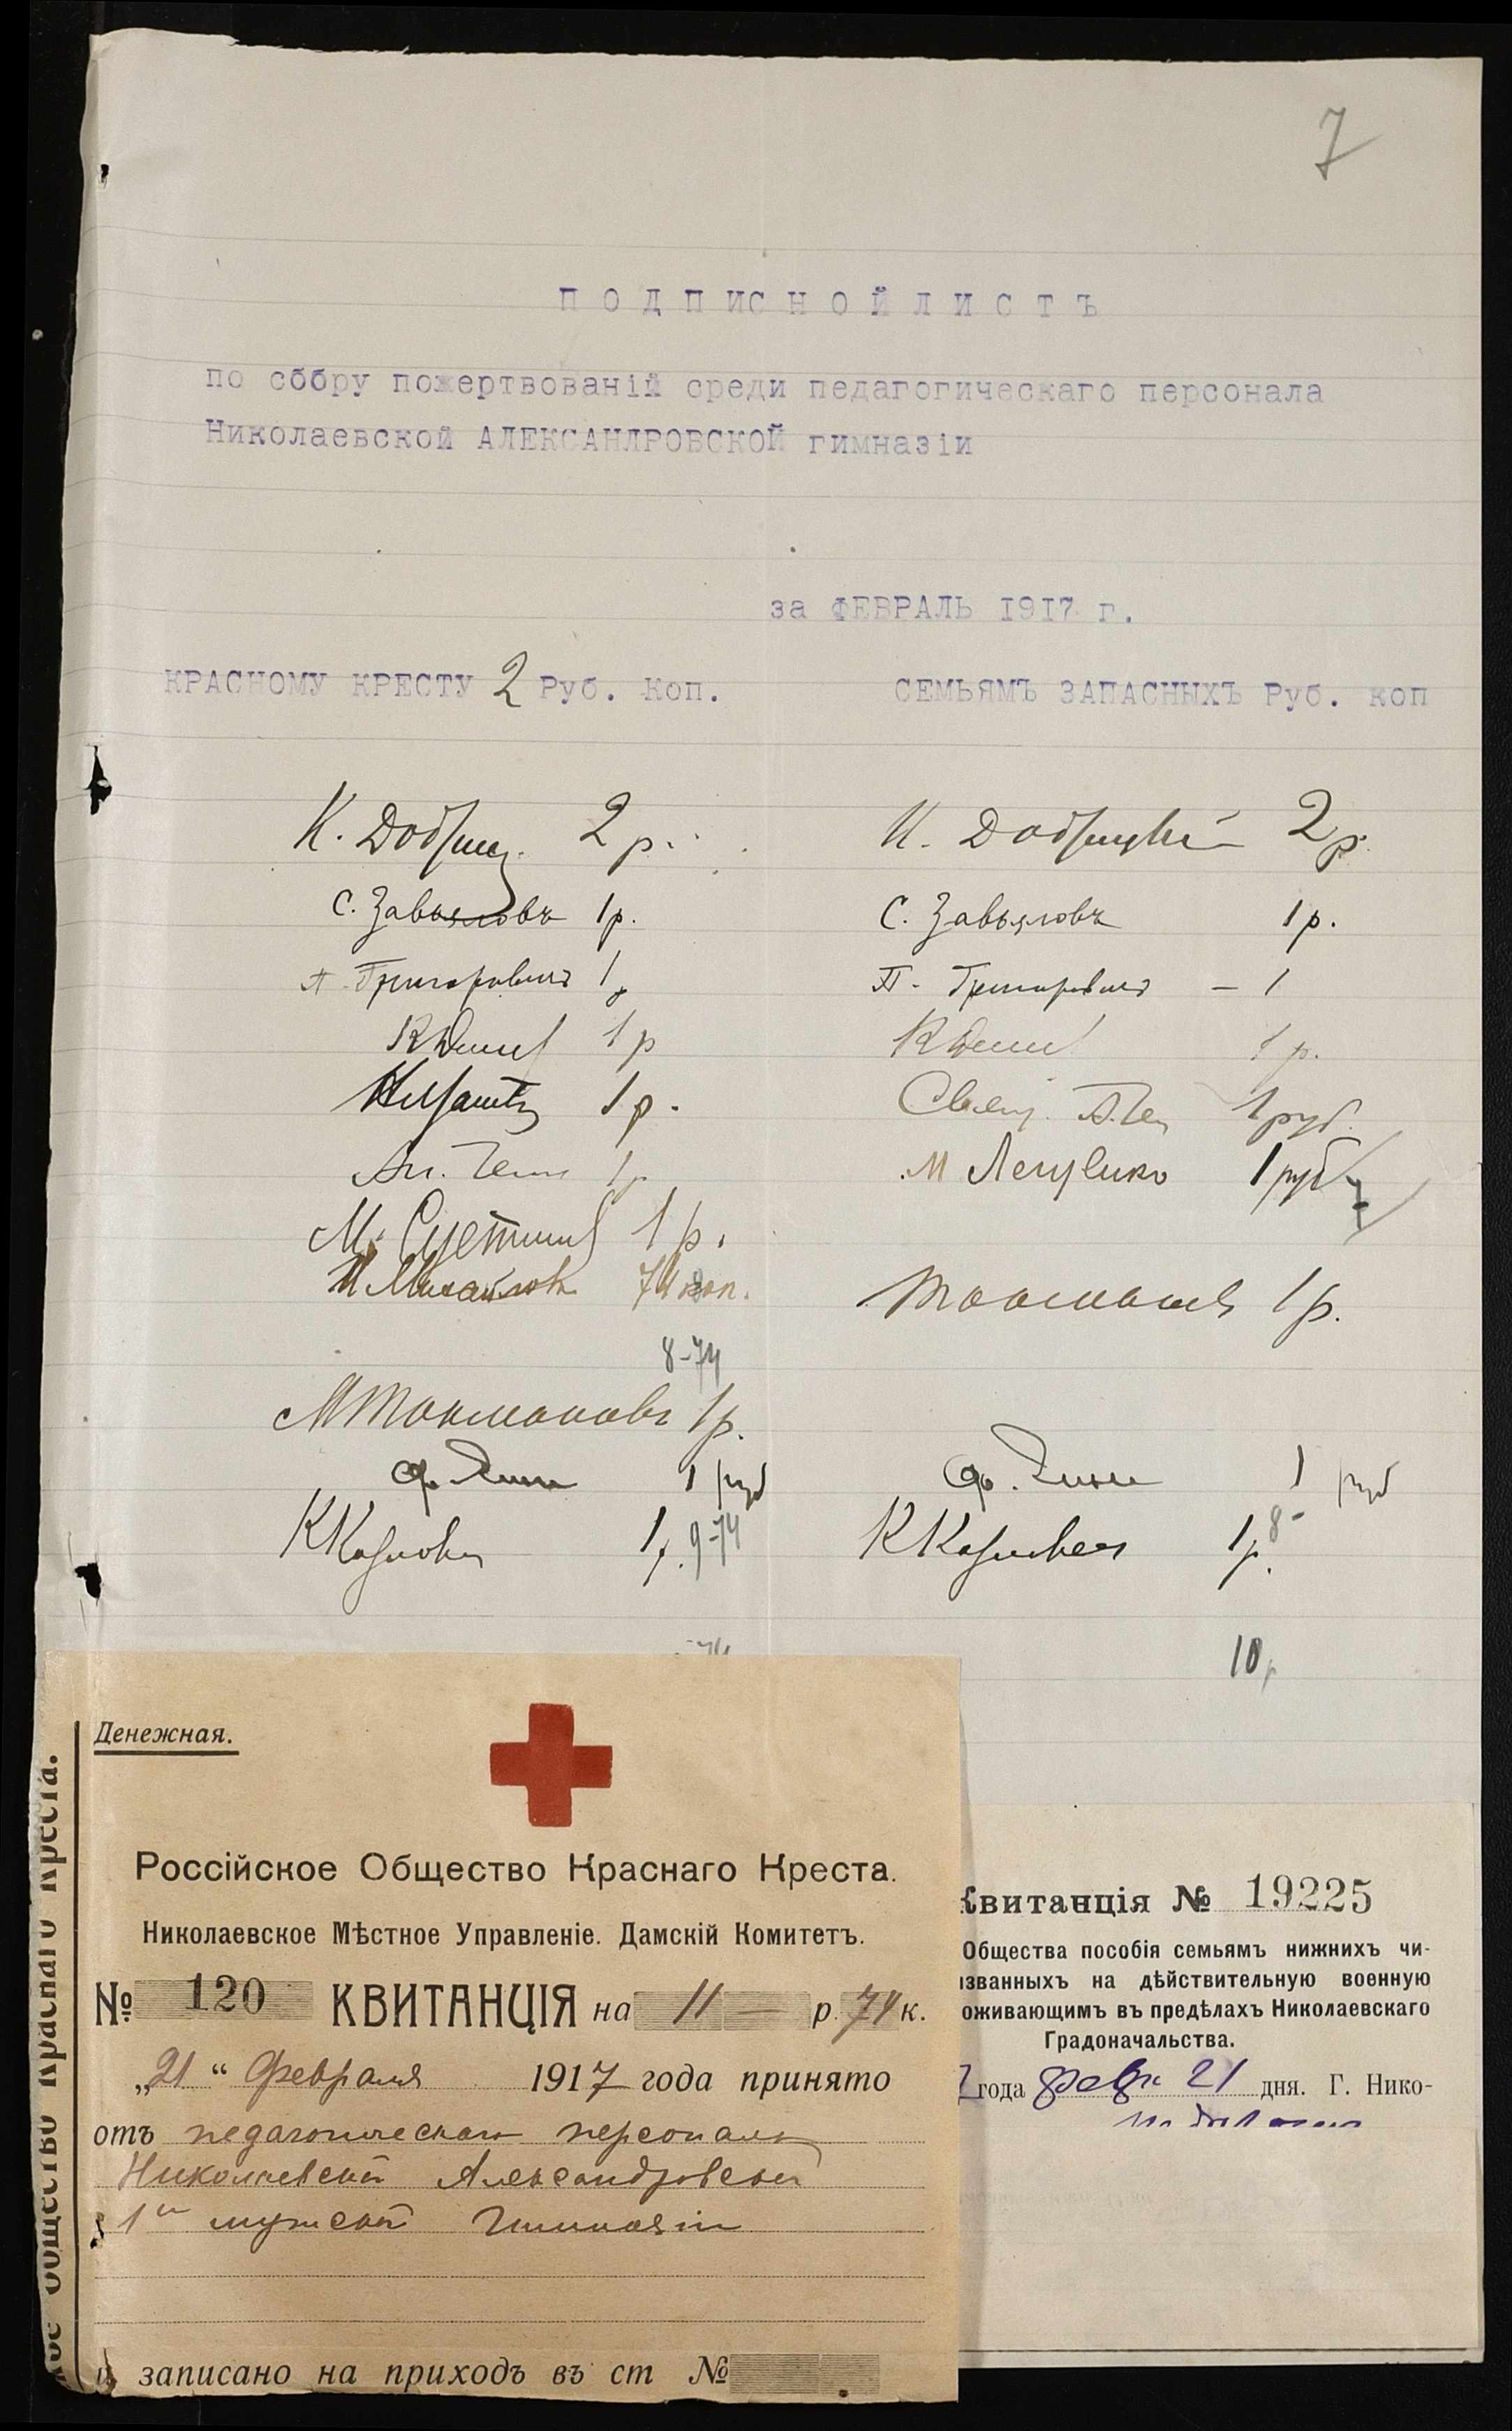 7
ПОДПИСНОЙ ЛИСТЪ
по сббру пожертвованій среди педагогическаго персонала
Николаевской АЛЕКСАНДРОВСКОЙ гимназіи
за ФЕВРАЛЬ 1917 г.
КРАСНОМУ КРЕСТУ 2 Руб. Коп.
СЕМЬЯМЪ ЗАПАСНЫХЪ Руб. коп
К. 2 р.
С. Завьяловъ 1 р.
П. Григоровичъ 1 р
1 р
1 р.
Ал. 1 р
М. Суетинъ 1 р.
И Михайловъ 74 коп.
8-74
М Токмаковъ 1 р.
Ф. 1 руб
К 1 р. 9-74
К. Добрицкій 2 р.
С. Завьяловъ 1 р.
П. Григоровичъ - 1
1 р.
Свящ. 1 руб.
М 1 руб
7
1 р.
Ф. 1 руб
К 1 р. 8-
10 р
Денежная.
Россійское Общество Краснаго Креста.
Николаевское Мѣстное Управленіе. Дамскій Комитетъ.
№ 120 КВИТАНЦІЯ на 11 — р. 74 к.
„21“ Февраля 1917 года принято
отъ педагогическаго персонала
Николаевской Александровской
1й мужской Гимназіи
записано на приходъ въ ст №
Общество Краснаго Креста.
Квитанція № 19225
Общества пособія семьямъ нижнихъ чи-
званныхъ на дѣйствительную военную
оживающимъ въ предѣлахъ Николаевскаго
Градоначальства.
7 года Февр 21 дня. Г. Нико-